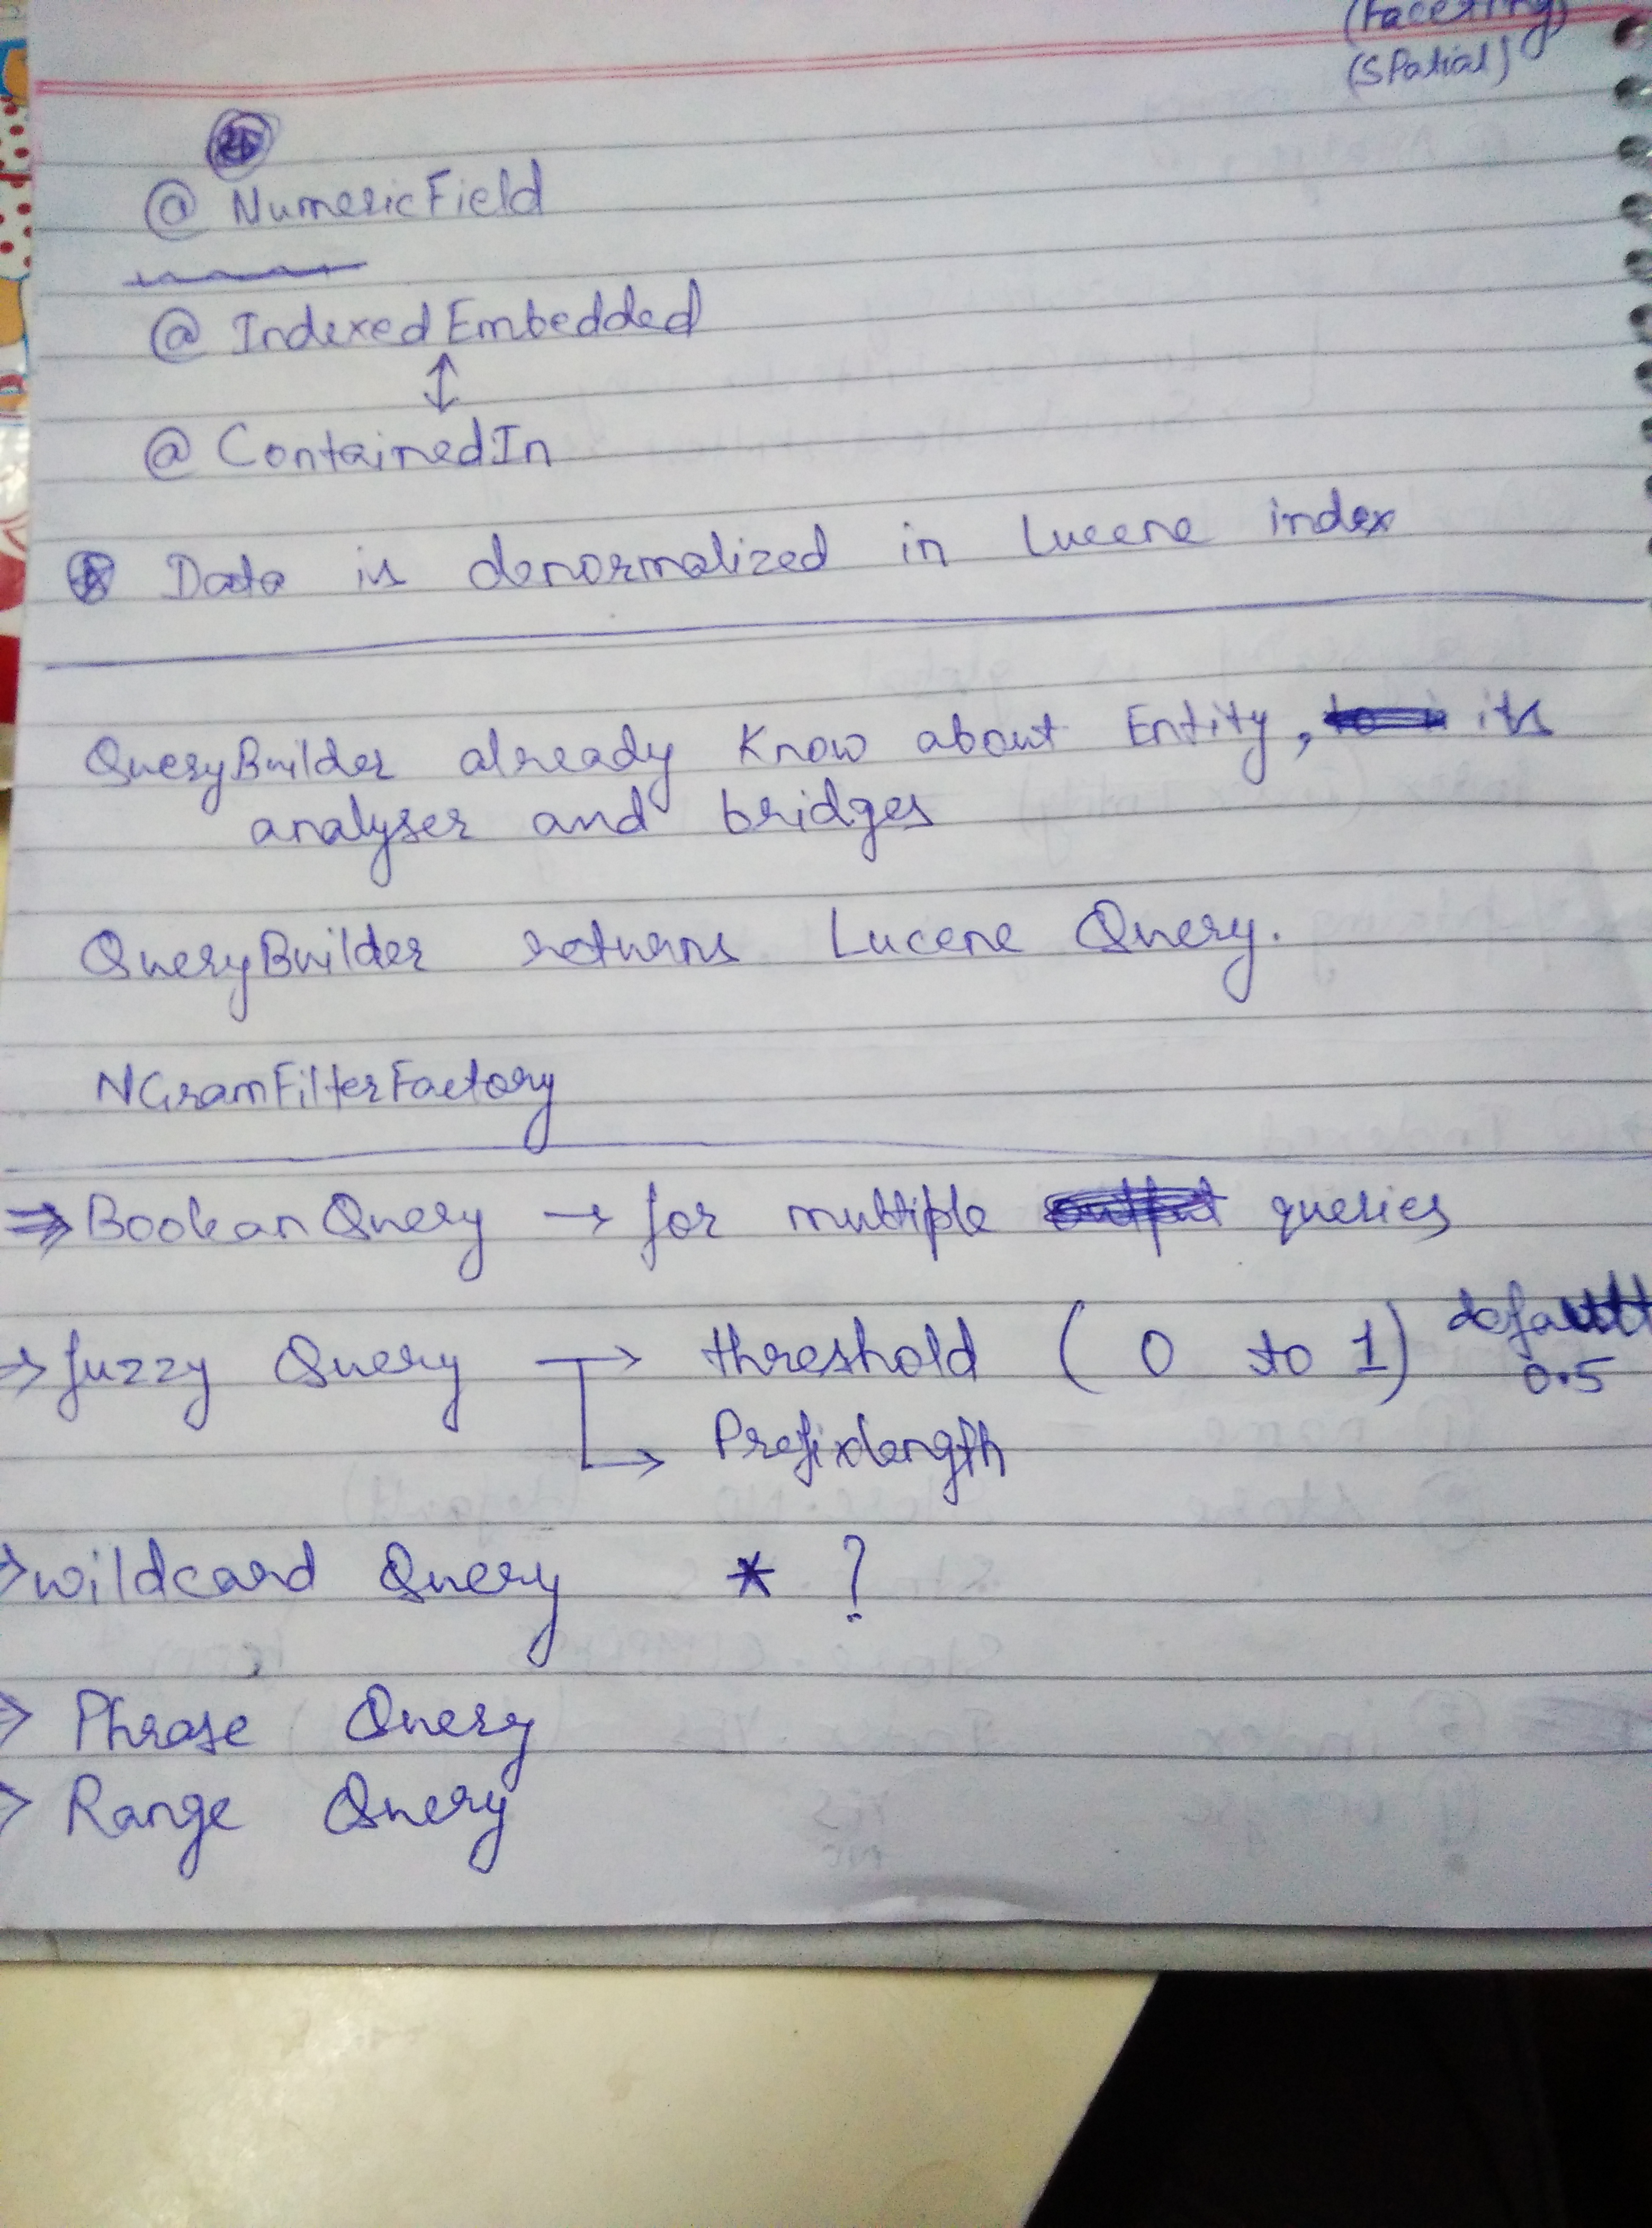 (Faceting)
(Spatial)
@ NumericField
@ IndexedEmbedded
↕
@ ContainedIn
Data is denormalized in Lucene index
QueryBuilder already know about Entity, its
analyser and bridges
QueryBuilder returns Lucene Query.
NGramFilterFactory
⇒ BooleanQuery → for multiple queries
⇒ fuzzy Query → threshold (0 to 1) default
0.5
→ Prefixlength
⇒ wildcard Query * ?
⇒ Phrase Query
⇒ Range Query